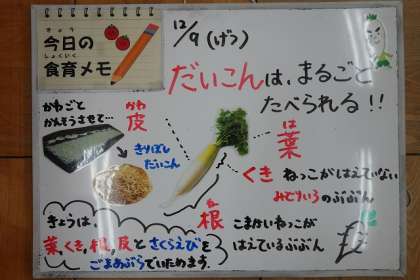 きょう
今日の
しょくいく
食育メモ
12/9(げつ)
だいこんは、まるごと
たべられる!!
かわごと
かんそうさせて…
かわ
皮
きりぼし
だいこん
は
葉
くき
ねっこがはえていない
みどりいろのぶぶん
ね
根
こまかいねっこが
はえているぶぶん
きょうは、
葉、くき、根、皮とさくらえびを
ごまあぶらでいためます。